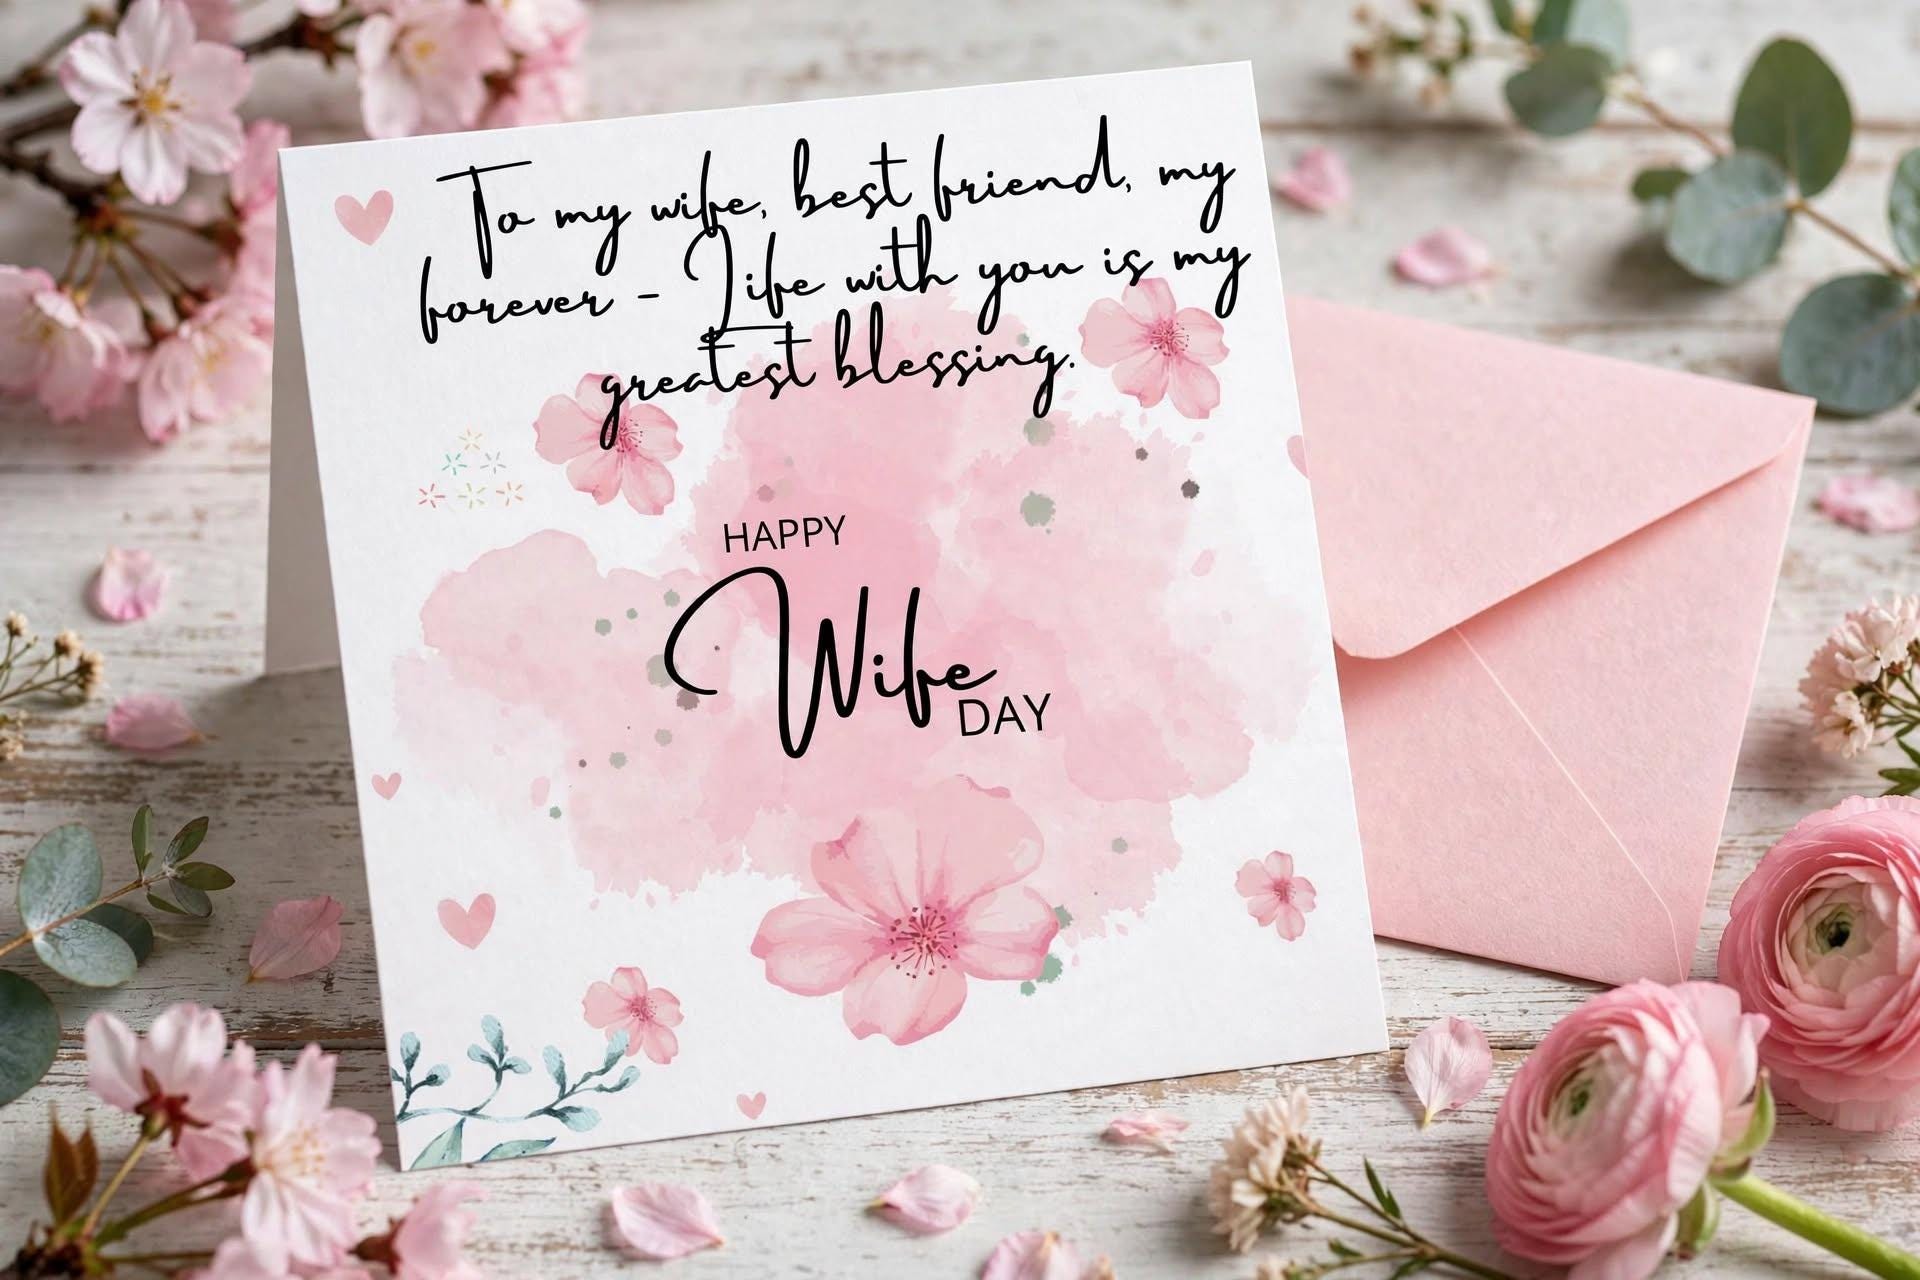 To my wife, best friend, my
forever - Life with you is my
greatest blessing.
HAPPY
Wife
DAY